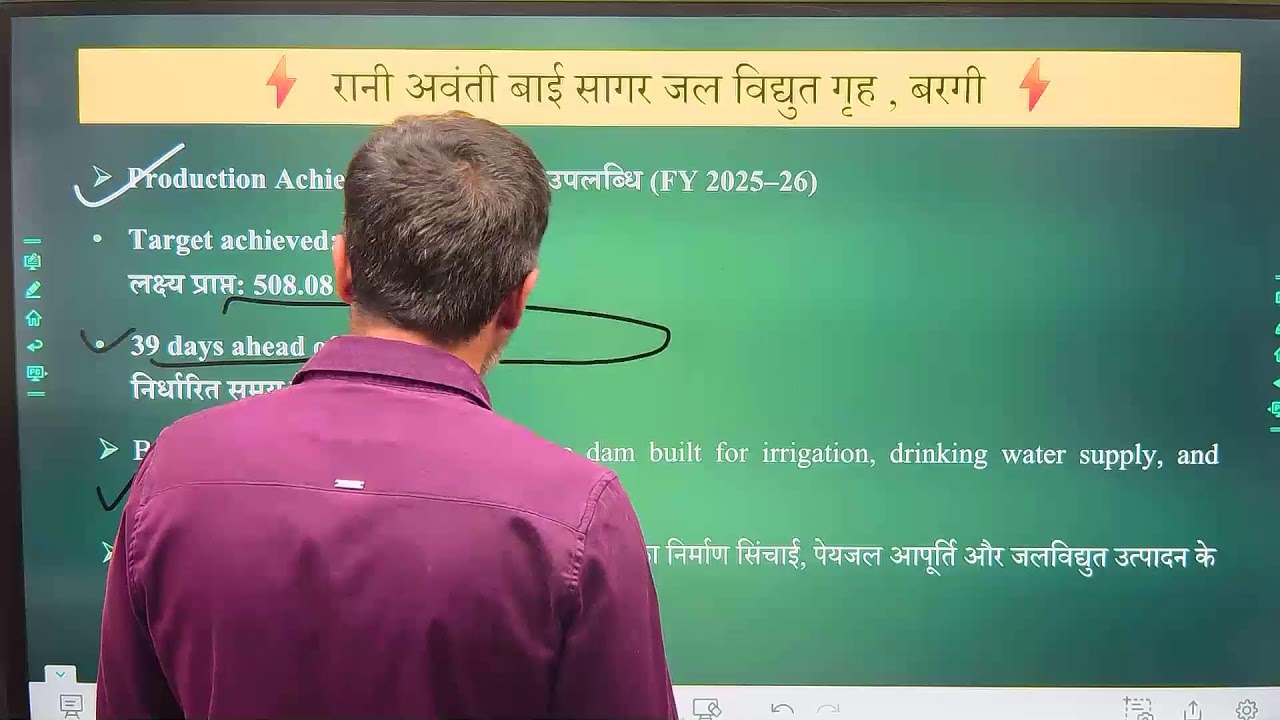 रानी अवंती बाई सागर जल विद्युत गृह , बरगी
Production Achie उपलब्धि (FY 2025–26)
Target achieved:
लक्ष्य प्राप्त: 508.08
39 days ahead
निर्धारित समय
dam built for irrigation, drinking water supply, and
निर्माण सिंचाई, पेयजल आपूर्ति और जलविद्युत उत्पादन के